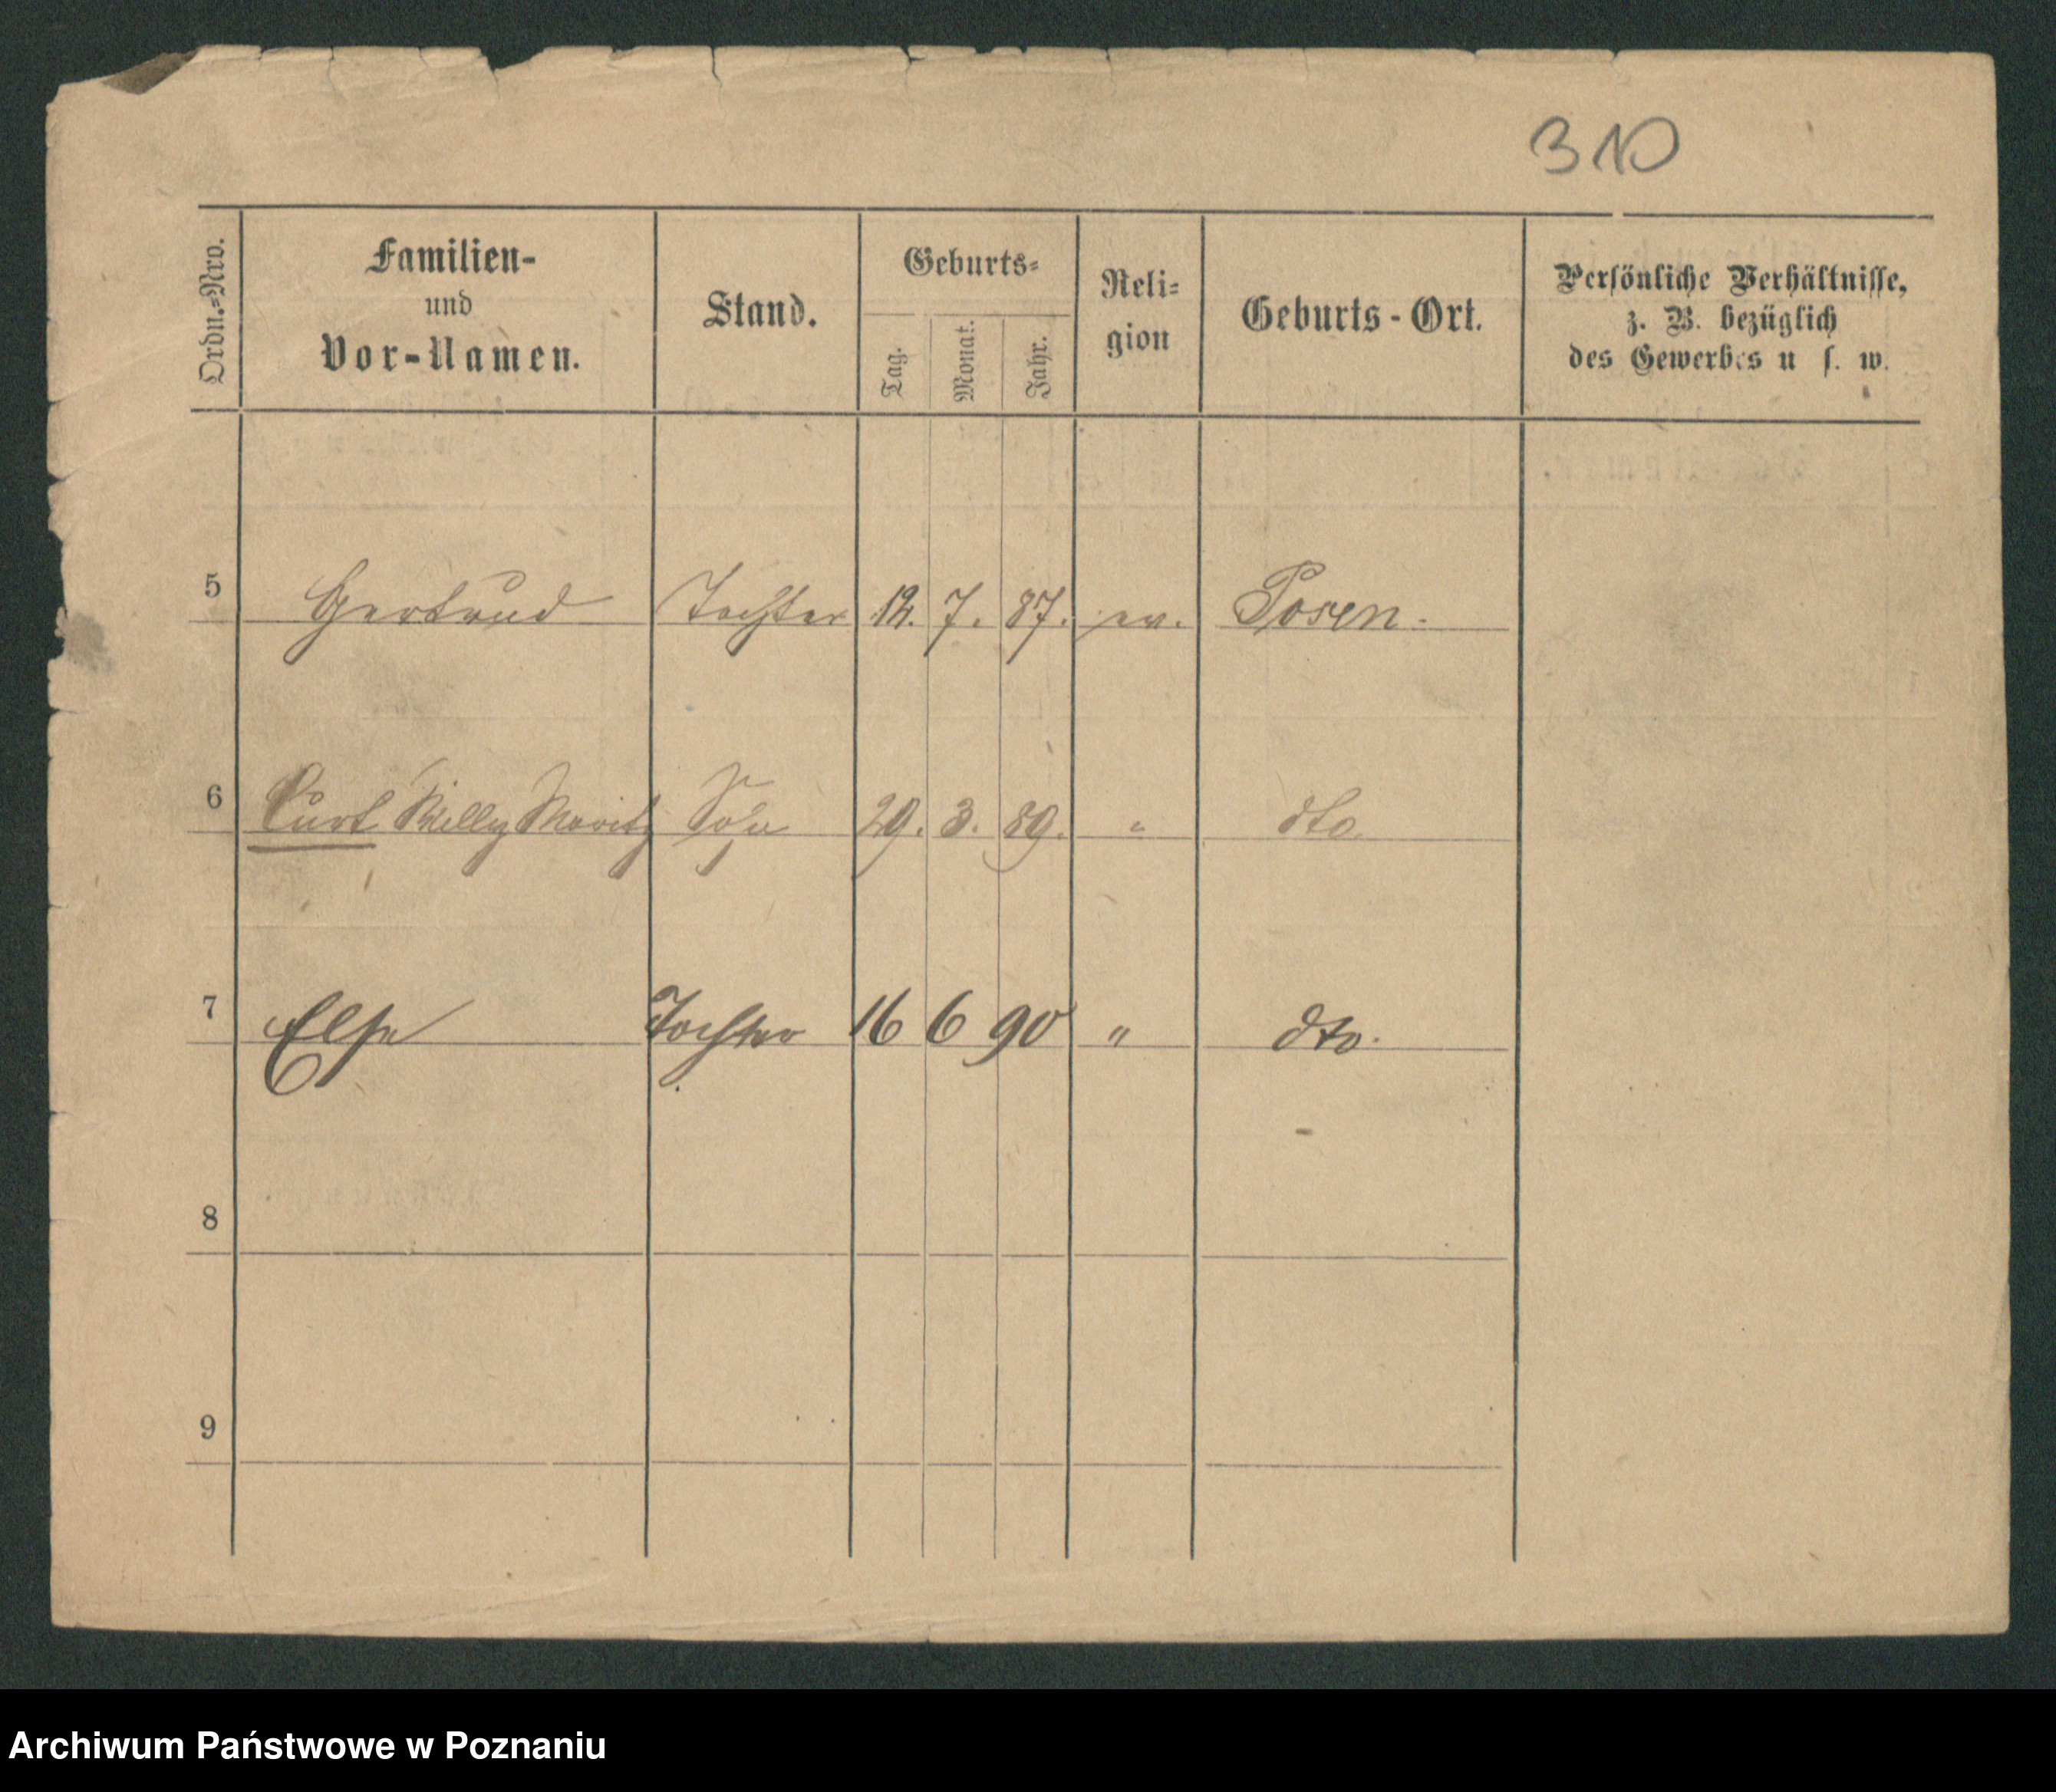 310
Ordn.=Nro. Familien- und Vor-Namen. Stand. Geburts= Tag. Monat. Jahr. Reli=gion Geburts-Ort. Persönliche Verhältnisse, z. B. bezüglich des Gewerbes u s. w.
5 Gertrud Tochter 12. 7. 87. ev. Posen.
6 Curt Willy Moritz Sohn 29. 3. 89. " dto.
7 Else Tochter 16 6 90 " dto.
8
9
Archiwum Państwowe w Poznaniu